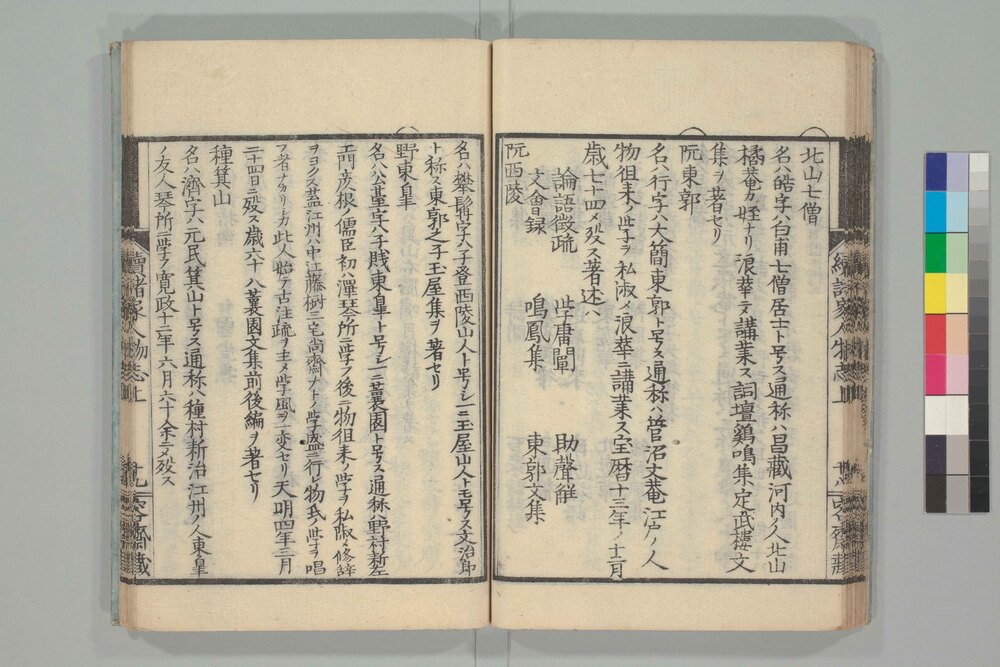 北山七僧
名ハ皓字ハ白甫七僧居士ト号ス通称ハ昌藏河内ノ人北山
橘菴カ姪ナリ浪華ニテ講業ス詞壇鷄鳴集定武樓文
集ヲ著セリ
阮東郭
名ハ行字ハ大簡東郭ト号ス通称ハ菅沼文菴江戸ノ人
物徂来ノ学ヲ私淑メ浪華ニ講業ス宝暦十三年ノ十二月
歳七十四メ殁ス著述ハ
論語徴疏 学庸闡 助聲解
文會録 鳴鳳集 東郭文集
阮西陵
名ハ攀髯字ハ子登西陵山人ト号シ一ニ玉屋山人トモ号ス文治郎
ト称ス東郭之子玉屋集ヲ著セリ
野東皐
名ハ公基字ハ子賎東皐ト号シ一ニ蓑園ト号ス通称ハ野村新左
エ門彦根ノ儒臣初ハ澤琴所ニ学フ後ニ物徂来ノ学ヲ私淑メ修辞
ヲヨクス蓋江州ハ中江藤樹三宅尚齋ナトノ学盛ニ行レ物氏ノ学ヲ唱
フ者ナカリシカ此人始テ古注疏ヲ主メ学風ヲ一変セリ天明四年三月
二十四日ニ殁ス歳六十八蓑園文集前後編ヲ著セリ
種箕山
名ハ濟字ハ元民箕山ト号ス通称ハ種村新治江州ノ人東皐
ノ友人琴所ニ学フ寛政十二年六月六十余ニメ殁ス
續諸家人物志上
廿八
續諸家人物志上
廿九